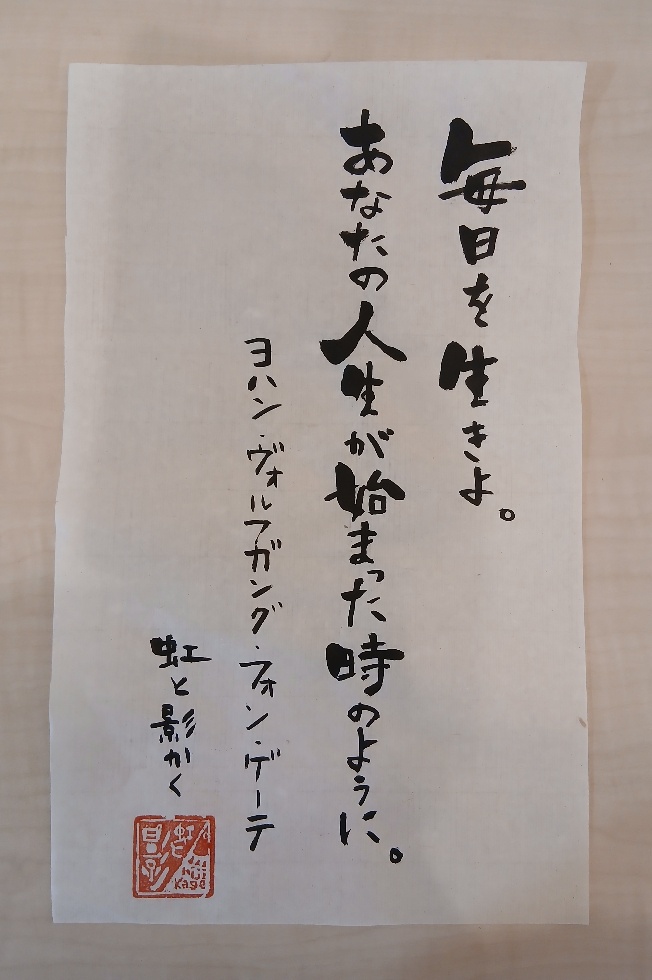 毎日を生きよ。
あなたの人生が始まった時のように。
ヨハン・ヴォルフガング・フォン・ゲーテ
虹と影かく
虹と影
kage